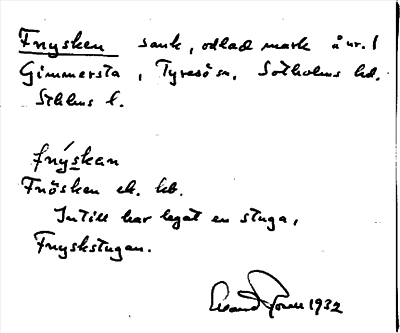 Frysken sank, odlad mark å nr. 1
Gimmersta, Tyresö sn, Sotholms hd.
Sthlms l.
frýskan
Frösken ek. kb.
Intill har legat en stuga,
Fryskstugan.
1932